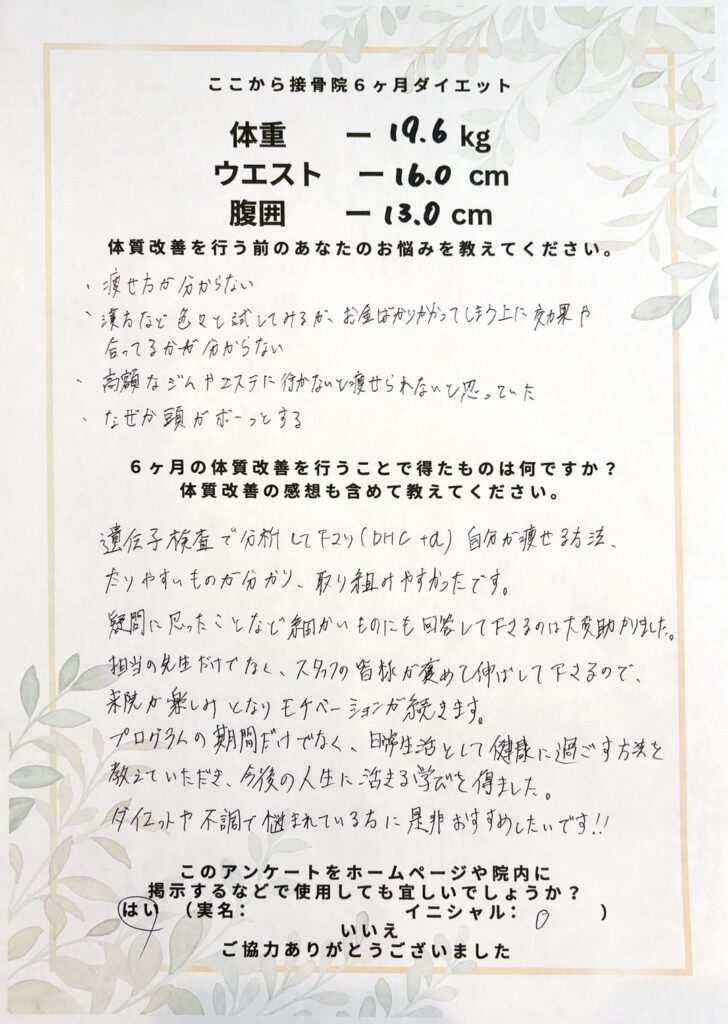 ここから接骨院６ヶ月ダイエット
体重 ー 19.6 kg
ウエスト ー 16.0 cm
腹囲 ー 13.0 cm
体質改善を行う前のあなたのお悩みを教えてください。
・痩せ方が分からない
・漢方など色々と試してみるが、お金ばかりかかってしまう上に効果や
合ってるかが分からない
・高額なジムやエステに行かないと痩せられないと思っていた
・なぜか頭がボーっとする
６ヶ月の体質改善を行うことで得たものは何ですか？
体質改善の感想も含めて教えてください。
遺伝子検査で分析して下さり(DHC+α) 自分が痩せる方法、
太りやすいものが分かり、取り組みやすかったです。
疑問に思ったことなど細かいものにも回答して下さるのは大変助かりました。
担当の先生だけでなく、スタッフの皆様が褒めて伸ばして下さるので、
来院が楽しみとなりモチベーションが続きます。
プログラムの期間だけでなく、日常生活として健康に過ごす方法を
教えていただき、今後の人生に活きる学びを得ました。
ダイエットや不調で悩まれている方に是非おすすめしたいです!!
このアンケートをホームページや院内に
掲示するなどで使用しても宜しいでしょうか？
はい （実名： イニシャル： O ）
いいえ
ご協力ありがとうございました